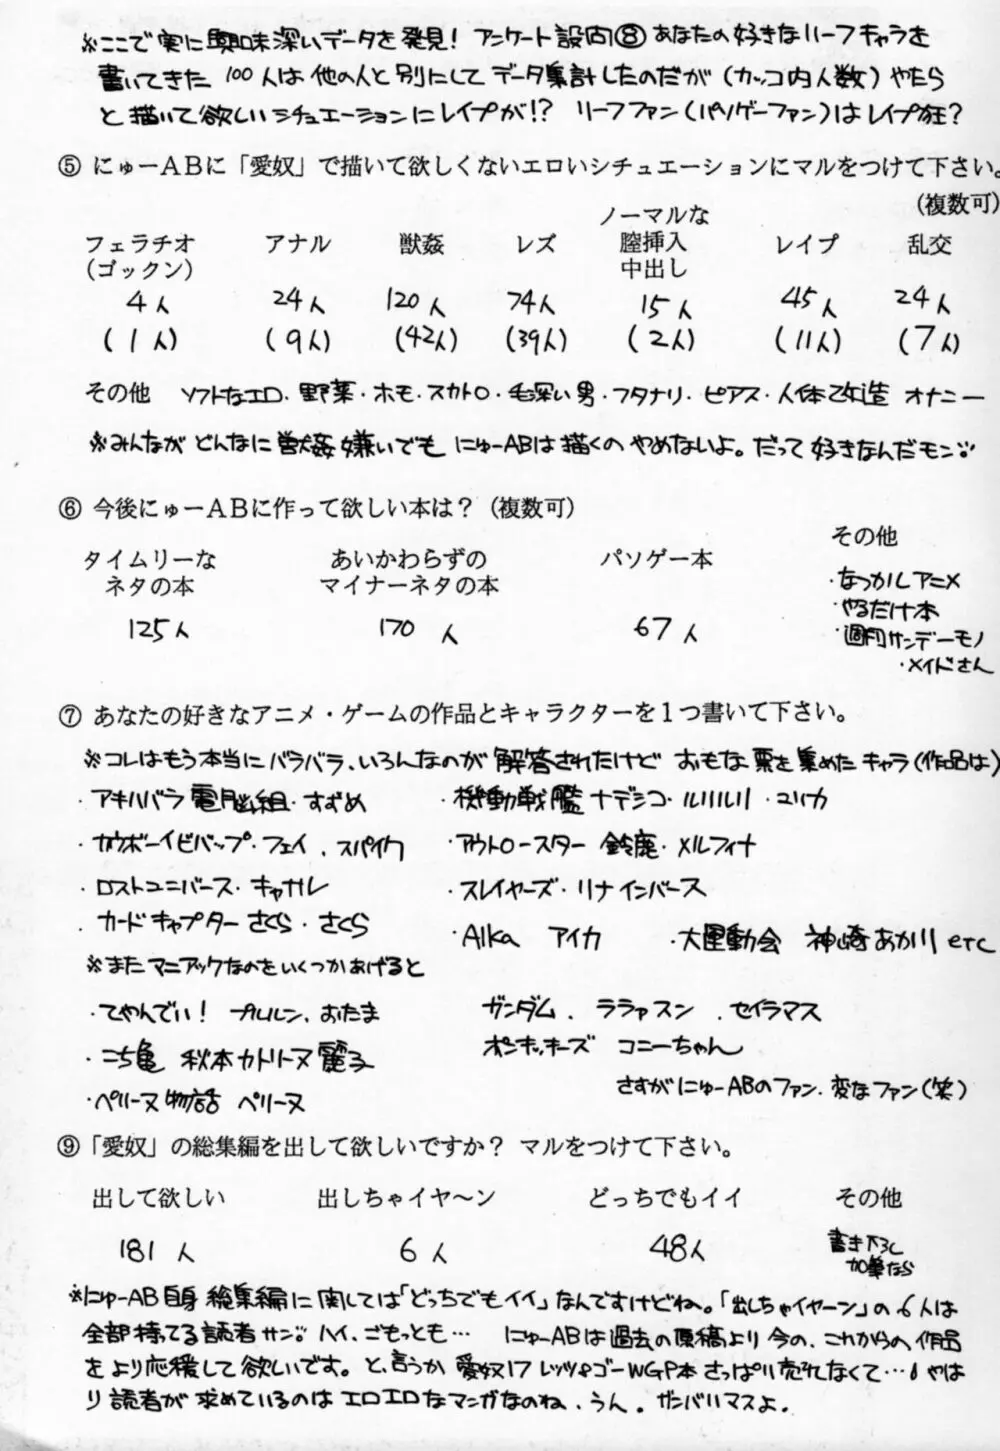 ※ここで実に興味深いデータを発見！ アンケート設問⑧あなたの好きなリーフキャラを
書いてきた 100人は他の人と別にしてデータ集計したのだが（カッコ内人数）やたら
と描いて欲しいシチュエーションにレイプが!? リーフファン（パソゲーファン）はレイプ狂？
⑤ にゅーABに「愛奴」で描いて欲しくないエロいシチュエーションにマルをつけて下さい。
（複数可）
フェラチオ（ゴックン） アナル 獣姦 レズ ノーマルな膣挿入中出し レイプ 乱交
4人 24人 120人 74人 15人 45人 24人
（1人） （9人） （42人） （39人） （2人） （11人） （7人）
その他 ソフトなエロ・野薬・ホモ・スカトロ・毛深い男・フタナリ・ピアス・人体改造 オナニー
※みんながどんなに獣姦嫌いでも にゅーABは描くのやめないよ。だって好きなんだモン
⑥ 今後にゅーABに作って欲しい本は？（複数可）
タイムリーなネタの本 あいかわらずのマイナーネタの本 パソゲー本 その他
125人 170人 67人
・なつかしアニメ
・やるだけ本
・週刊サンデーモノ
・メイドさん
⑦ あなたの好きなアニメ・ゲームの作品とキャラクターを1つ書いて下さい。
※コレはもう本当にバラバラ、いろんなのが解答されたけど おもな票を集めたキャラ（作品は）
・アキハバラ電脳組・すずめ ・機動戦艦ナデシコ・ルリルリ・ユリカ
・カウボーイビバップ・フェイ、スパイク ・アウトロースター 鈴鹿・メルフィナ
・ロストユニバース・キャナル ・スレイヤーズ・リナインバース
・カードキャプターさくら・さくら ・AIka アイカ ・大運動会 神崎あかり etc
※またマニアックなのをいくつかあげると
・てやんでい！ プルルン、おたま ガンダム、ララァスン、セイラマス
・こち亀 秋本カトリーヌ麗子 ポンキッキーズ コニーちゃん
・ペリーヌ物語 ペリーヌ さすがにゅーABのファン、変なファン（笑）
⑨「愛奴」の総集編を出して欲しいですか？ マルをつけて下さい。
出して欲しい 出しちゃイヤ～ン どっちでもイイ その他
181人 6人 48人 書き下ろし加筆なら
※にゅーAB自身 総集編に関しては「どっちでもイイ」なんですけどね。「出しちゃイヤーン」の6人は
全部持ってる読者サン ハイ、ごもっとも… にゅーABは過去の原稿より今の、これからの作品
をより応援して欲しいです。と、言うか 愛奴17 レッツ&ゴーWGP本 さっぱり売れなくて…やは
り読者が求めているのはエロエロなマンガなのね、うん。ガンバリマスよ。